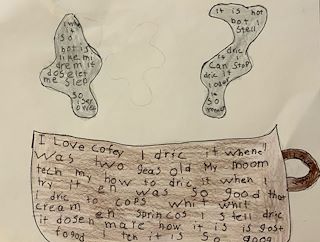 I
it is
so
hot is
like mi
drem it
dos elet
me slep
so
it is hot
bot I
stell
dric
it I
can stop
dric it
I
it
so
I Love Cofey I dric it when I
was two yeas old My moom
tech my how to dric it when I
try it en was so good that
dric to cops whit whit
cream en sprincos I stell dric
it dosen mate how it is is gost
fo god I ten it is so good